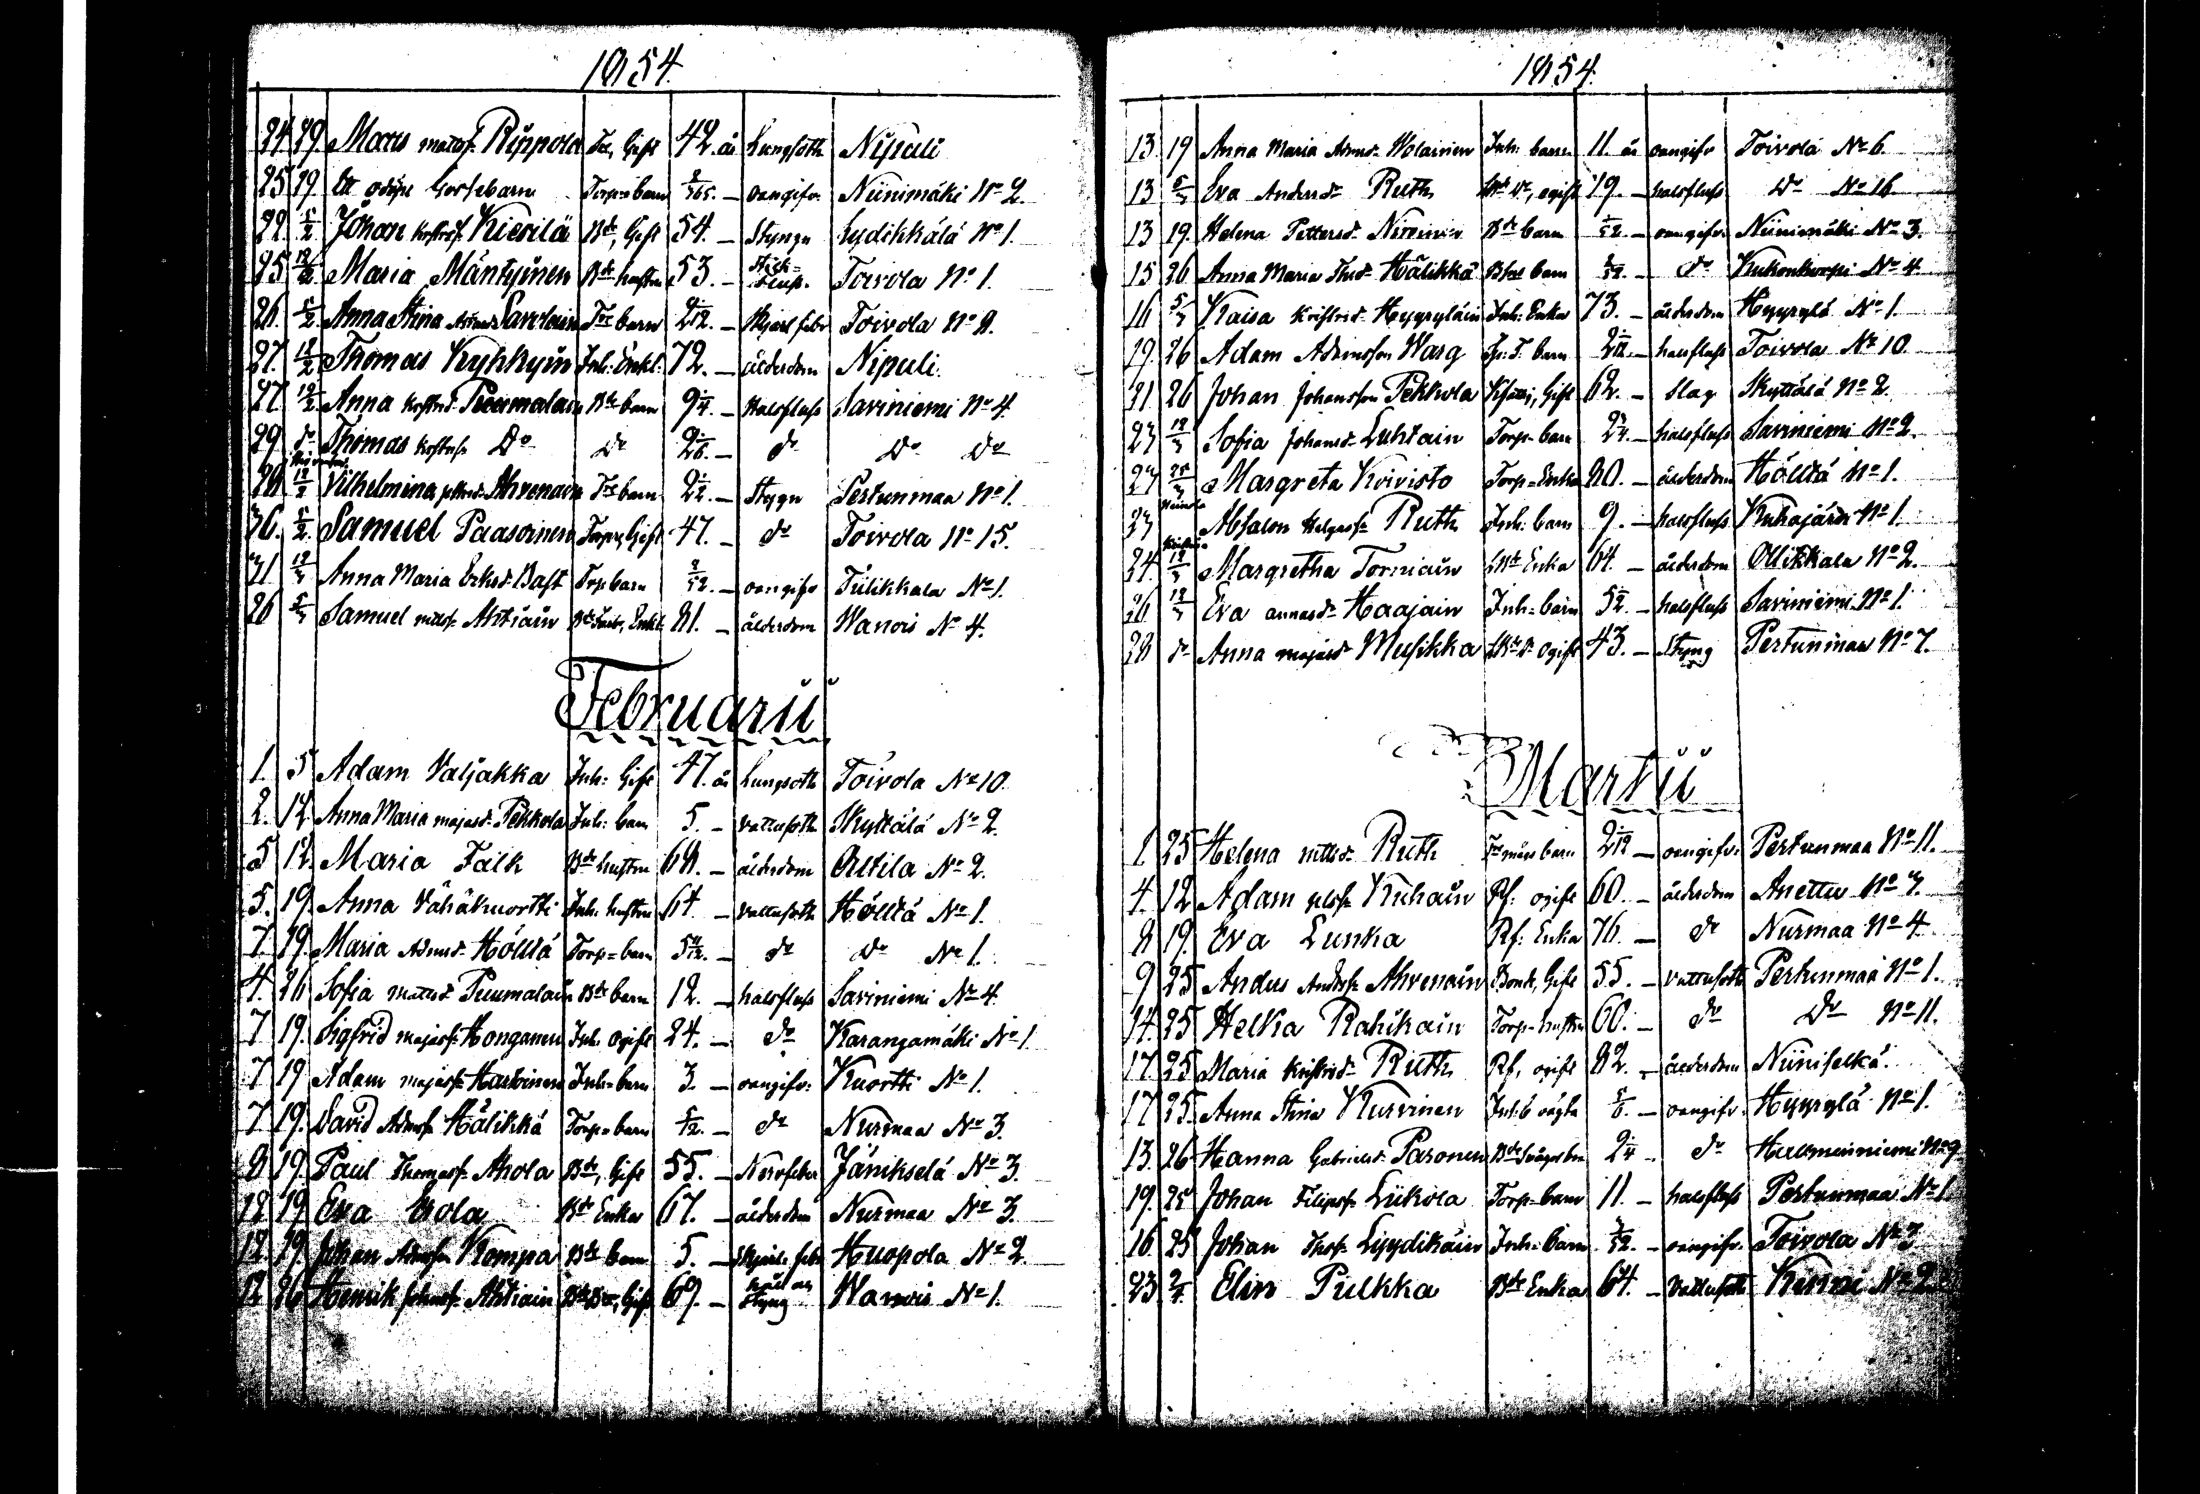 1854.
24. 29 Matts mattss. Rippola Tor, Gift 42. år Lungsoth Nipuli
25 29. Ett odöpt Gossebarn Torp=barn 8/365. – oangifv. Niinimäki No 2.
22. 5/2 Johan kristers. Kierilä Bde, Gift 54. – Styngn Lydikkälä No 1.
25 12/2 Maria Mäntyinen Bde hustru 53. – Toivola No 1.
26. 5/2 Anna Stina Savolain Tor barn 2 1/12. – Skjarl febr Toivola No 8.
27. 12/2 Thomas Kyhkyin Inh: Enkl: 72. – ålderdom Nipuli.
27 12/2 Anna Puumalain Bde barn 9 1/4. – Halsfluss Saviniemi No 4.
29 do Thomas Do Do 2 1/6. – do Do Do
28 12/2 Vilhelmina Ahvenain Tor barn 2 1/2. – Styng Pertunmaa No 1.
30. 5/2 Samuel Paasoinen Torp, Gift 47. – do Toivola No 15.
31 12/3 Anna Maria Eriksd. Bast Torp barn 2/52. – oangifv Tillikkala No 1.
26 5/3 Samuel mattss. Ahtiain Enkl 81. – ålderdom Wanois No 4.
Februarii
1. 5 Adam Valjakka Inh: Gift 47. år Lungsoth Toivola No 10.
2. 12. Anna Maria majasd. Pekkola Inh: barn 5. – vattusoth Skyttälä No 2.
5 12. Maria Falk Bde hustru 68. – ålderdom Ollila No 2.
5. 19. Anna Vähäkuortti Inh. hustru 64 – vattusoth Hölltä No 1.
7. 19. Maria Admsd. Hölltä Torp=barn 5/12. – do Do No 1.
4. 26 Sofia Mattsd. Puumalain Bde barn 12. – halsfluss Saviniemi No 4.
7 19. Sigfrid majass. Hongannen Inh. ogift 24. – do Karangamäki No 1
7 19 Adam majass. Inh=barn 3. – oangifv: Kuortti No 1.
7 19. David Admss Hälikkä Torp=barn 5/12. – do Nurmaa No 3.
8 19. Paul Thomass. Ahola Bde, Gift 55. – Nervfeber Jänikselä No 3.
12 19 Eva Erola Bde Enka 67. – ålderdom Nurmaa No 3.
12. 19. Johan Admss. Kompa Bde barn 5. – Skjarl. febr Huopola No 2.
12 26 Henrik Johanss. Ahtiain Gift 69. – håll och Styng Wanois No 1.
1854.
13 19 Anna Maria Admsd. Wolainen Inh: barn 11. år oangifv Toivola No 6.
13 5/3 Eva Andersd. Ruth ogift 19. – halsfluss Do No 16.
13 19. Helena Pettersd. Niroinen Bde barn 1/52. – oangifv. Niinimäki No 3.
15 26 Anna Maria Thsd. Hälikkä barn 2/52 – do Kukonkorpi No 4.
16 5/3 Kaisa Kristersd. Hyyryläin Inh. Enka 73. – ålderdom Hyyrylä No 1.
19. 26 Adam Adamsson Warg barn 2/12. – halsfluss Toivola No 10.
21 26 Johan Johansson Pekkola Gift 62. – Slag Skyttälä No 2.
23 12/3 Sofia Johansd. Luhtain Torp=barn 2 3/4. – halsfluss Saviniemi No 2.
23 25/3 Margreta Koivisto Torp=Enka 80. – ålderdom Hölltä No 1.
23 Absalon Helgass. Ruth Inh: barn 9. – halsfluss Kuhajärvi No 1.
24. 12/3 Margretha Torniain Enka 64. – ålderdom Ollikkala No 2.
26 12/3 Eva annasd. Haajain Inh=barn 5/2. – halsfluss Saviniemi No 1.
28 do Anna majasd. Musikka ogift 43. – Styng Pertunmaa No 7.
Martii
1 25 Helena mattsd. Ruth barn 2 1/12 – oangifv. Pertunmaa No 11.
4. 12 Adam Kuhain Rf: ogift 60. – ålderdom Anettu No 3.
8 19. Eva Lunka Rf: Enka 76. – do Nurmaa No 4
9 25 Anders Anderss. Ahvenain Bonde, Gift 55. – vattusoth Pertunmaa No 1.
14. 25 Helka Rahikain Torp=hustru 60. – do Do No 11.
17. 25 Maria Kristersd. Ruth Rf, ogift 82. – ålderdom Niiniselkä.
17 25. Anna Stina Kurvinen Inh: b 5/6. – oangifv. Hyyrylä No 1.
13. 26 Hanna Gabrielsd. Pasonen Bde 2 1/4 – do No 9
19. 25 Johan Filipss. Liikola Torp=barn 11. – halsfluss Pertunmaa No 1
16 25 Johan Thss. Lyydikäin Inh=barn 3/52. – oangifv. Toivola No 3
23 2/4. Elin Pulkka Bde Enka 64. – Vattusoth Kinni No 2